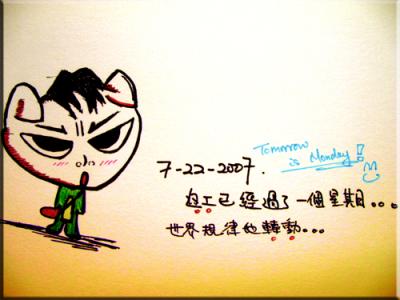 Tomorrow
is Monday!
7-22-2007.
工已經過了一個星期...
世界規律地轉動...